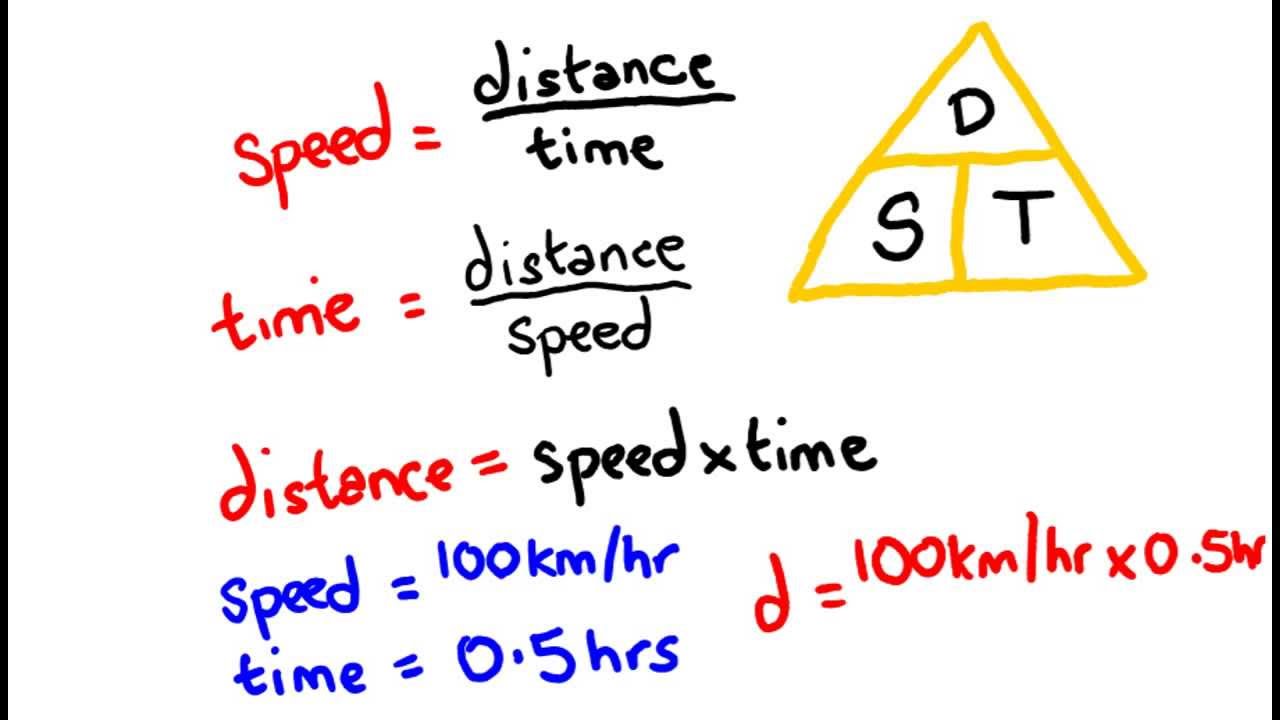 speed = distance
time
time = distance
speed
distance = speed x time
speed = 100km/hr
time = 0.5hrs
d = 100km/hr x 0.5hr
D
S T